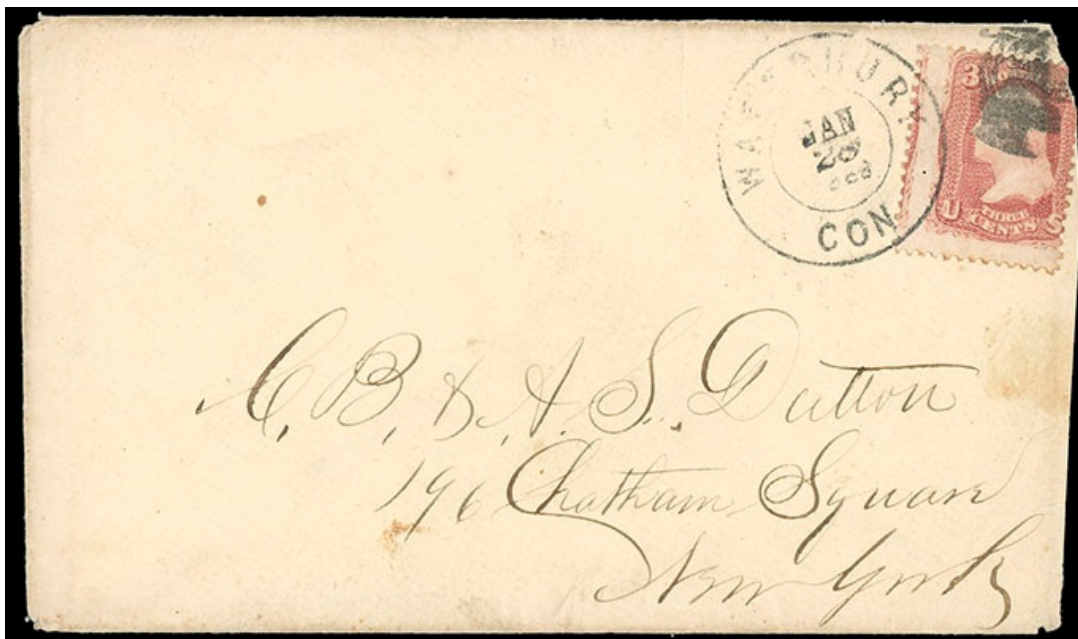 WATERBURY
JAN
CON
3
U S
THREE
CENTS
C. B. & A. S. Dutton
196 Chatham Square
New York